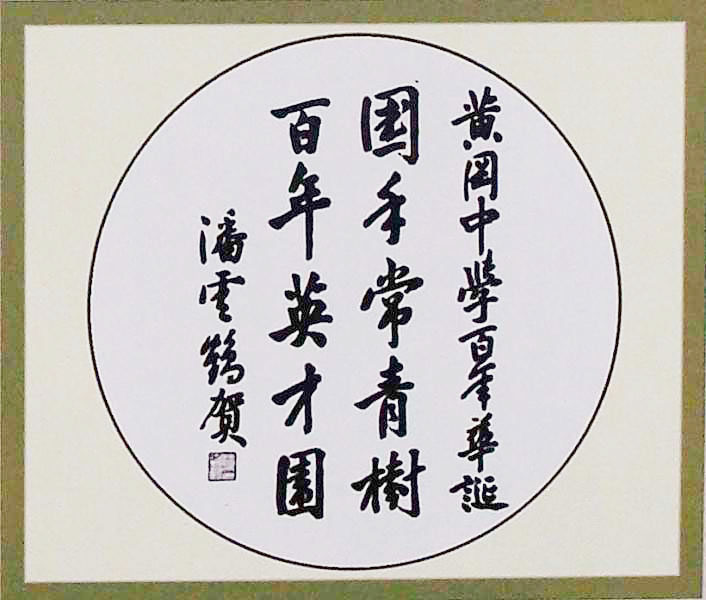 黄岡中學百年華誕
国手常青樹
百年英才園
潘雲鶴贺